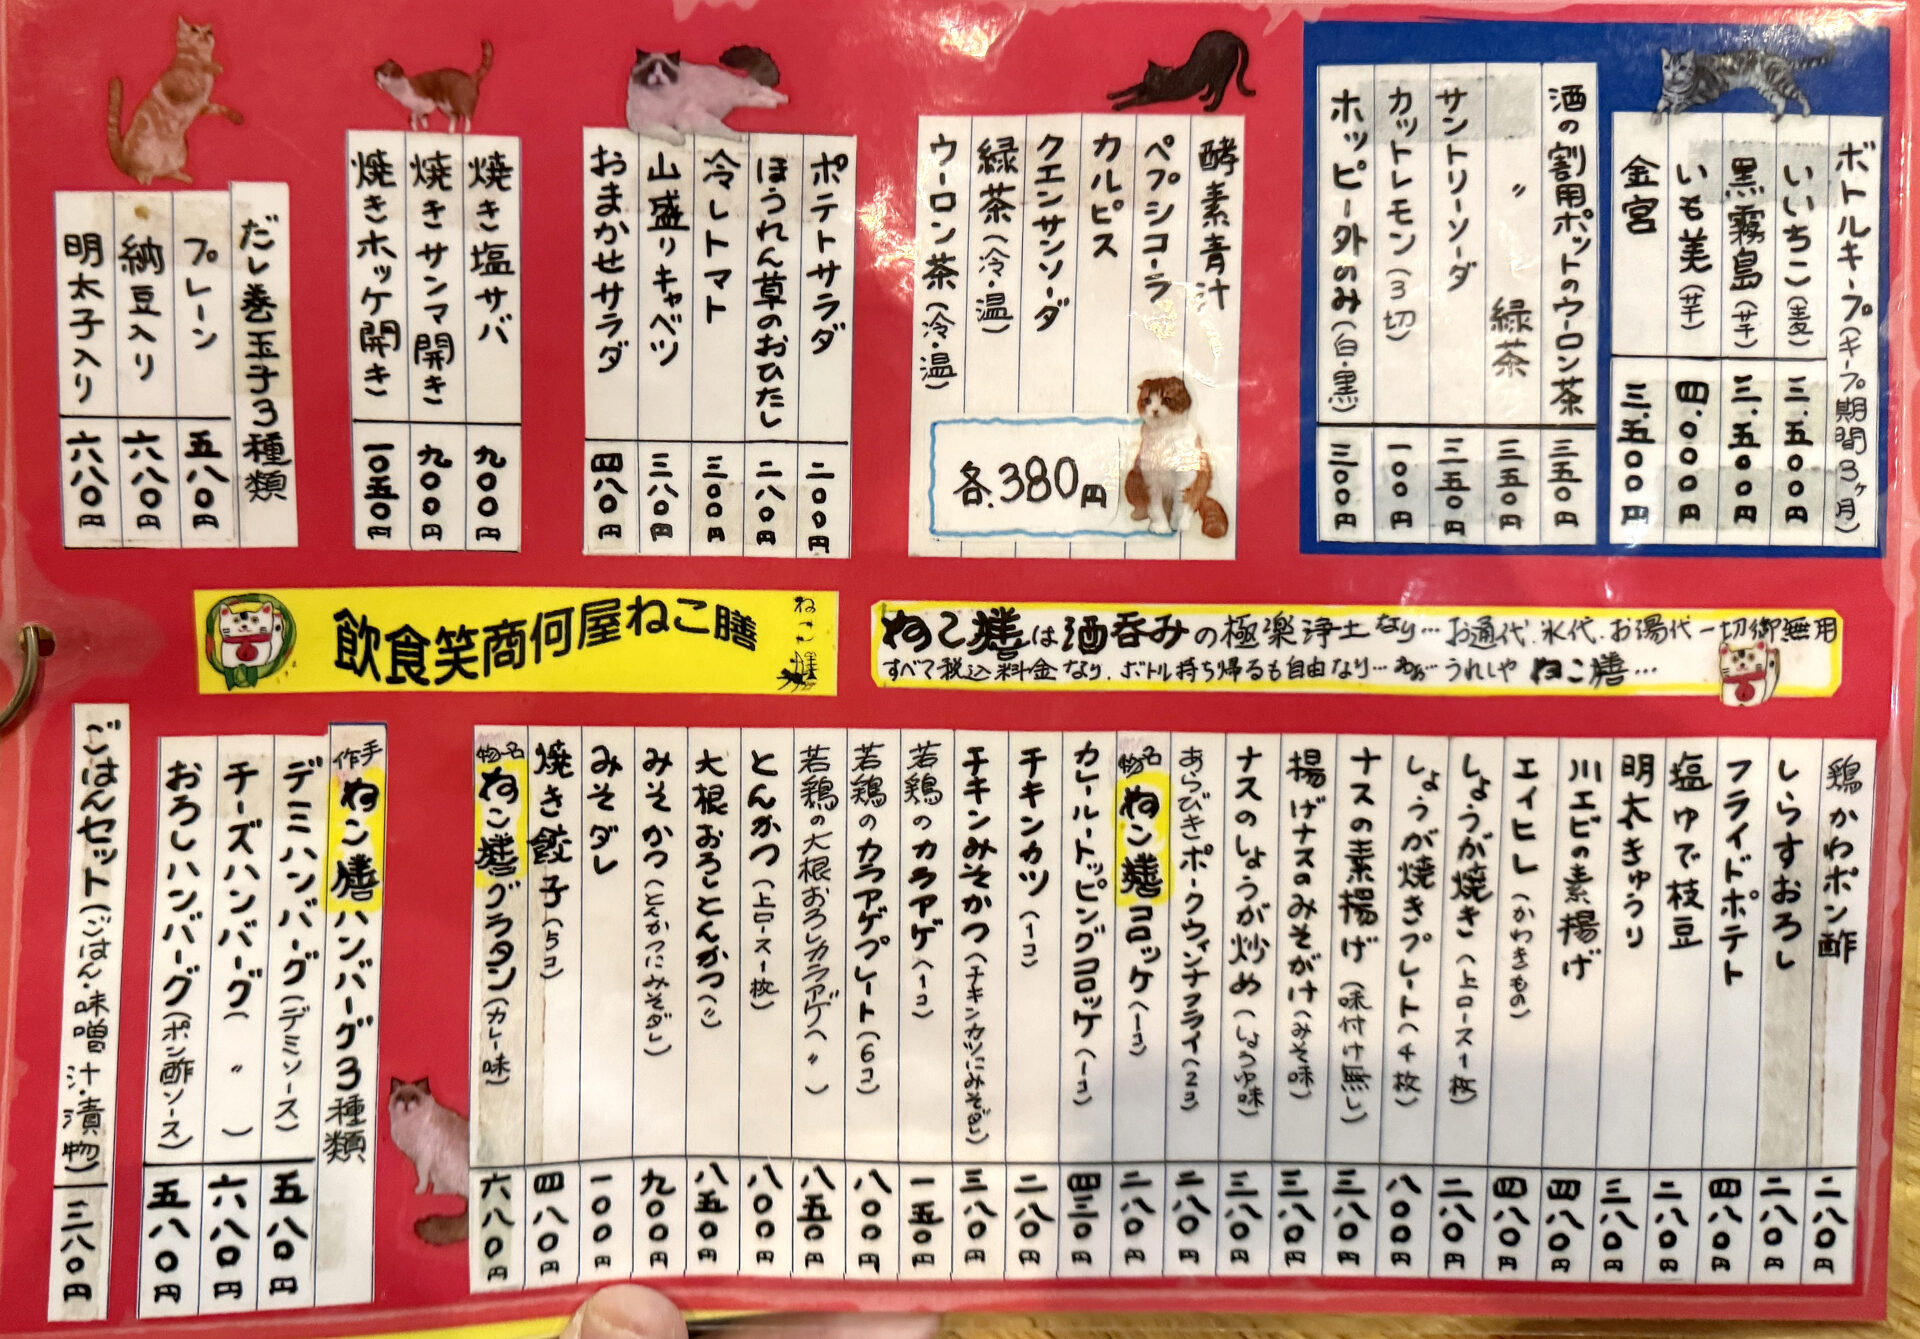 ボトルキープ(キープ期間3ヶ月)
いいちこ(麦) 三.五〇〇円
黒霧島(芋) 三.五〇〇円
いも美(芋) 四.〇〇〇円
金宮 三.五〇〇円
酒の割用ポットのウーロン茶 三五〇円
〃 緑茶 三五〇円
サントリーソーダ 三五〇円
カットレモン(3切) 一〇〇円
ホッピー外のみ(白・黒) 三〇〇円
酵素青汁
ペプシコーラ
カルピス
クエンサンソーダ
緑茶(冷・温)
ウーロン茶(冷・温)
各.380円
ポテトサラダ 二〇〇円
ほうれん草のおひたし 二八〇円
冷しトマト 三〇〇円
山盛りキャベツ 三八〇円
おまかせサラダ 四八〇円
焼き塩サバ 九〇〇円
焼きサンマ開き 九〇〇円
焼きホッケ開き 一〇五〇円
だし巻玉子3種類
プレーン 五八〇円
納豆入り 六八〇円
明太子入り 六八〇円
飲食笑商何屋ねこ膳
ねこ膳
ねこ膳は酒呑みの極楽浄土なり…お通代.氷代.お湯代一切御無用
すべて税込料金なり.ボトル持ち帰るも自由なり…わぉ…うれしや ねこ膳…
鶏かわポン酢 二八〇円
しらすおろし 二八〇円
フライドポテト 四八〇円
塩ゆで枝豆 二八〇円
明太きゅうり 三八〇円
川エビの素揚げ 四八〇円
エイヒレ(かわきもの) 四八〇円
しょうが焼き(上ロース1枚) 二八〇円
しょうが焼きプレート(4枚) 八〇〇円
ナスの素揚げ(味付け無し) 三八〇円
揚げナスのみそがけ(みそ味) 三八〇円
ナスのしょうが炒め(しょうゆ味) 三八〇円
あらびきポークウィンナフライ(2コ) 二八〇円
名物ねこ膳コロッケ(1コ) 二八〇円
カレートッピングコロッケ(1コ) 四三〇円
チキンカツ(1コ) 二八〇円
チキンみそかつ(チキンカツにみそダレ) 三八〇円
若鶏のカラアゲ(1コ) 一五〇円
若鶏のカラアゲプレート(6コ) 八〇〇円
若鶏の大根おろしカラアゲ(〃) 八五〇円
とんかつ(上ロース1枚) 八〇〇円
大根おろしとんかつ(〃) 八五〇円
みそかつ(とんかつにみそダレ) 九〇〇円
みそダレ 一〇〇円
焼き餃子(5コ) 四八〇円
名物ねこ膳グラタン(カレー味) 六八〇円
手作ねこ膳ハンバーグ3種類
デミハンバーグ(デミソース) 五八〇円
チーズハンバーグ(〃) 六八〇円
おろしハンバーグ(ポン酢ソース) 五八〇円
ごはんセット(ごはん・味噌汁・漬物) 三八〇円